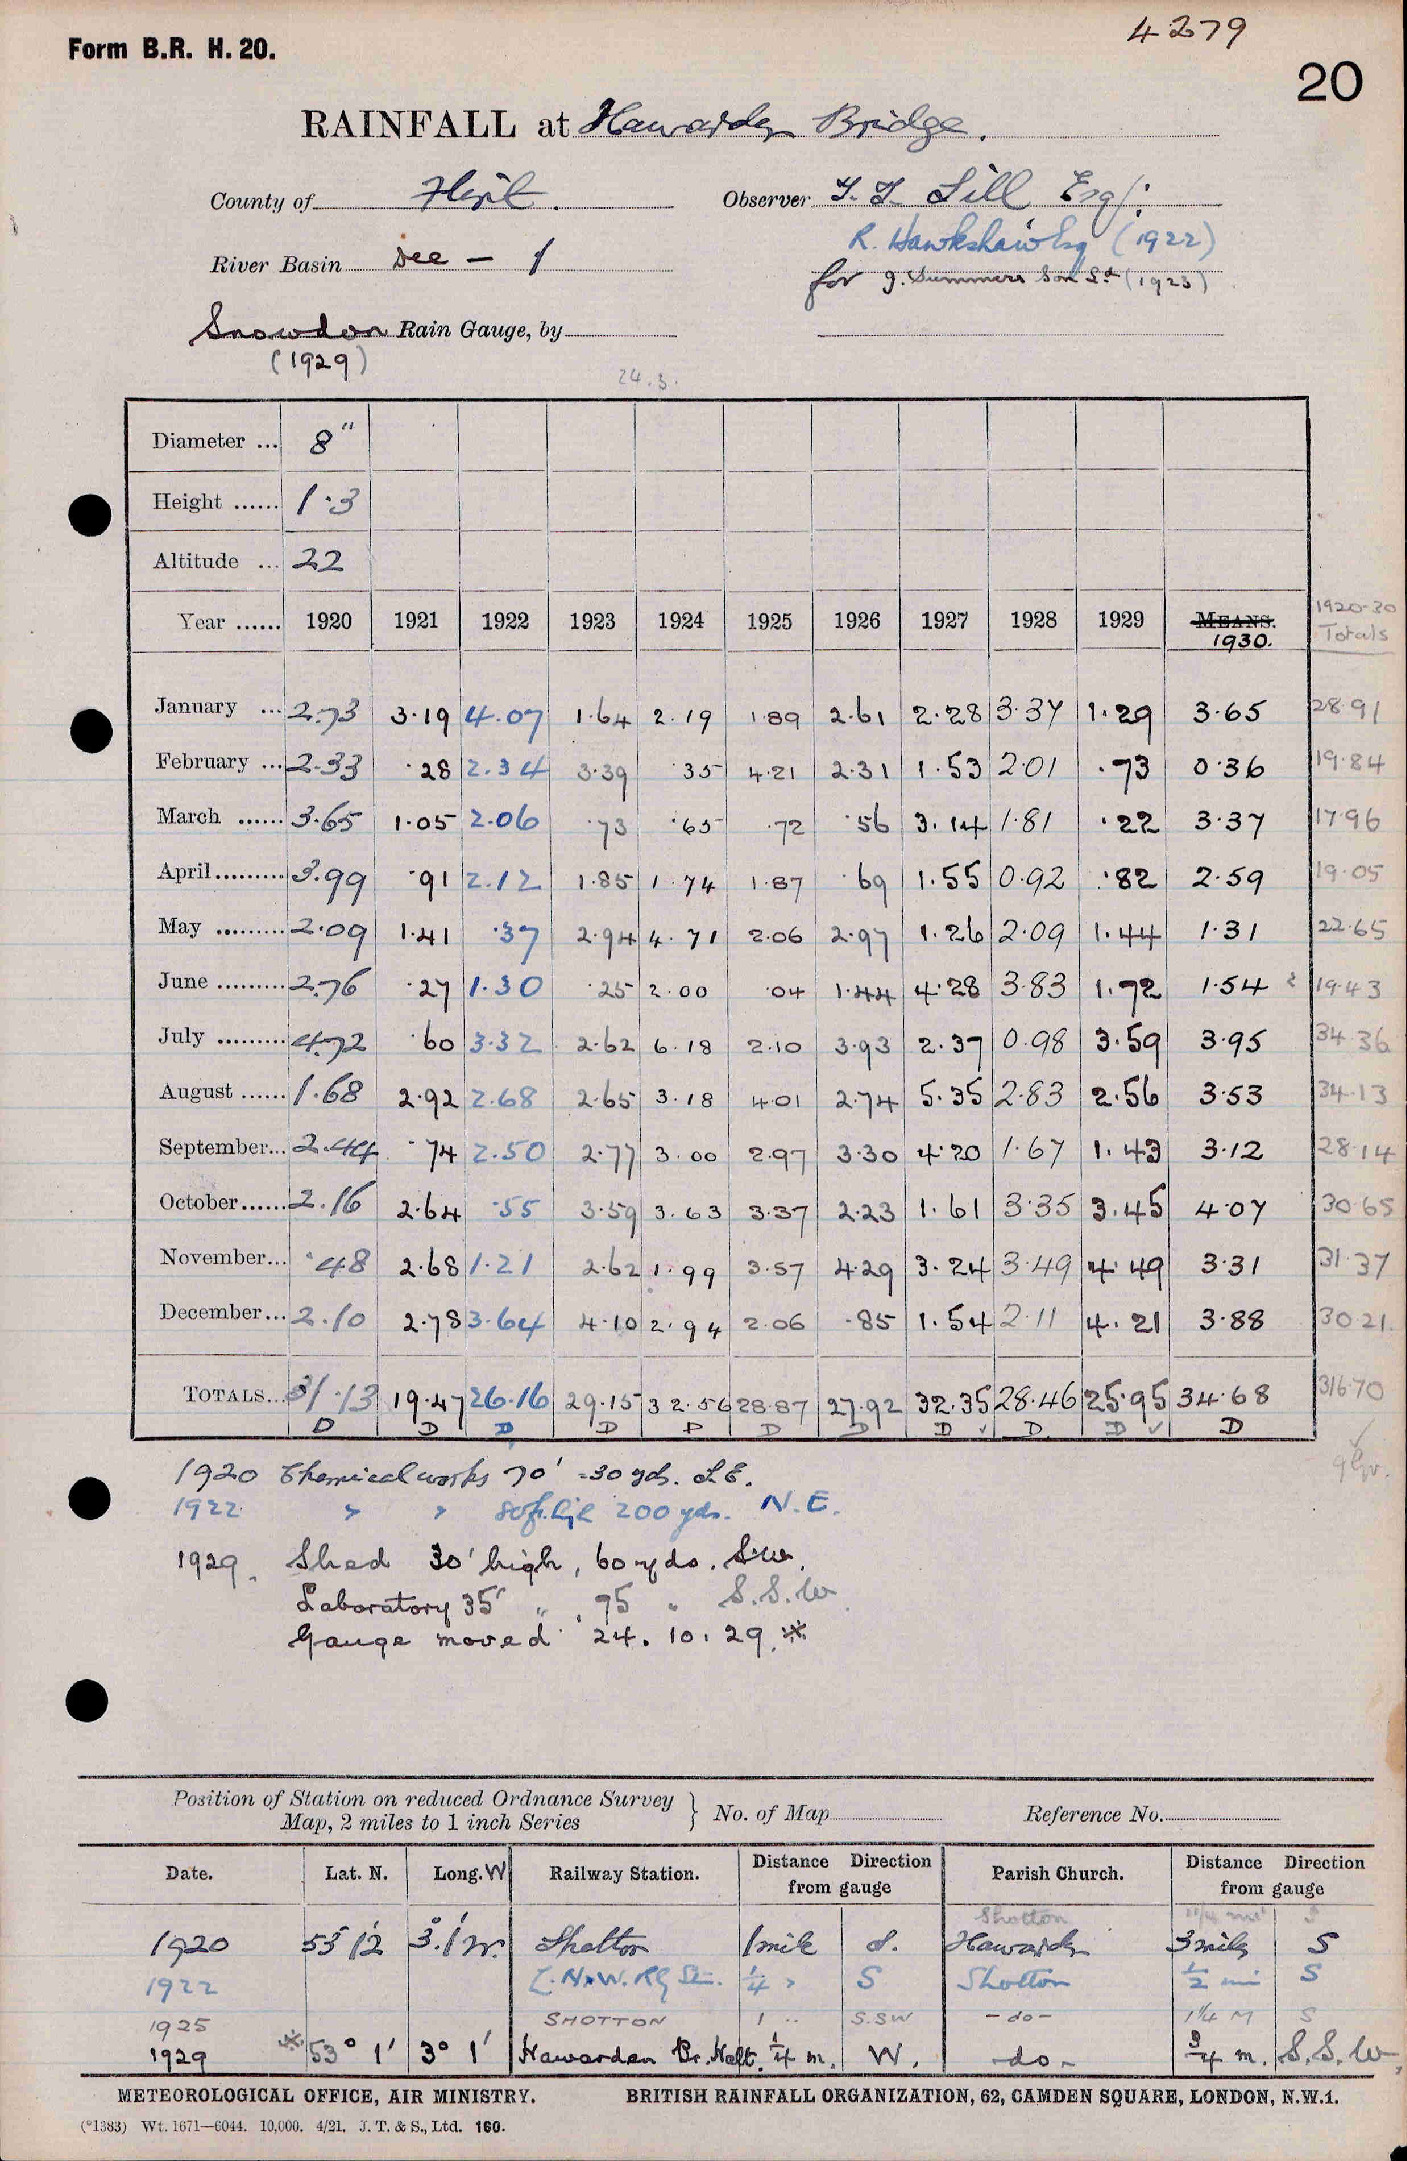 4279
Form B.R. H. 20.
20
RAINFALL at Hawarden Bridge.
County of Flint. Observer Lill Esq.
R. Hawkshaw Esq (1922)
River Basin Dee - 1
for J. Summers Son Ld (1923)
Snowdon Rain Gauge, by
(1929)
24.3.
Diameter ... 8"
Height ...... 1.3
Altitude ... 22
Year ...... 1920 1921 1922 1923 1924 1925 1926 1927 1928 1929 MEANS. 1930. 1920-30 Totals
January ... 2.73 3.19 4.07 1.64 2.19 1.89 2.61 2.28 3.37 1.29 3.65 28.91
February ... 2.33 .28 2.34 3.39 .35 4.21 2.31 1.53 2.01 .73 0.36 19.84
March ...... 3.65 1.05 2.06 .73 .65 .72 .56 3.14 1.81 .22 3.37 17.96
April ......... 3.99 .91 2.12 1.85 1.74 1.87 .69 1.55 0.92 .82 2.59 19.05
May ......... 2.09 1.41 .37 2.94 4.71 2.06 2.97 1.26 2.09 1.44 1.31 22.65
June ......... 2.76 .27 1.30 .25 2.00 .04 1.44 4.28 3.83 1.72 1.54 19.43
July ......... 4.72 .60 3.32 2.62 6.18 2.10 3.93 2.37 0.98 3.59 3.95 34.36
August ...... 1.68 2.92 2.68 2.65 3.18 4.01 2.74 5.35 2.83 2.56 3.53 34.13
September... 2.44 .74 2.50 2.77 3.00 2.97 3.30 4.20 1.67 1.43 3.12 28.14
October...... 2.16 2.64 .55 3.59 3.63 3.37 2.23 1.61 3.35 3.45 4.07 30.65
November... .48 2.68 1.21 2.62 1.99 3.57 4.29 3.24 3.49 4.49 3.31 31.37
December... 2.10 2.78 3.64 4.10 2.94 2.06 .85 1.54 2.11 4.21 3.88 30.21
TOTALS... 31.13 19.47 26.16 29.15 32.56 28.87 27.92 32.35 28.46 25.95 34.68 316.70
D D D D D D D D ✓ D D ✓ D ✓
1920 Chemical works 70' - 30 yds. S.E.
1922 " " 200 yds. N.E.
1929. Shed 30' high, 60 yds. S.W.
Laboratory 35' " , 75 " S.S.W.
Gauge moved 24.10.29.*
Position of Station on reduced Ordnance Survey
Map, 2 miles to 1 inch Series } No. of Map Reference No.
Date. Lat. N. Long. W Railway Station. Distance from gauge Direction Parish Church. Distance from gauge Direction
Shotton 1¼ S
1920 53° 12' 3° 1' W. Shotton 1 mile S. Hawarden 3 miles S
1922 L.N.W. Rly St. ¼ " S Shotton ½ mi S
1925 SHOTTON 1 .. S.SW - do - 1¼ M S
1929 * 53° 1' 3° 1' Hawarden Br. Halt. ¼ m. W. - do - ¾ m. S.S.W.
METEOROLOGICAL OFFICE, AIR MINISTRY. BRITISH RAINFALL ORGANIZATION, 62, CAMDEN SQUARE, LONDON, N.W.1.
(*1383) Wt. 1671—6044. 10,000. 4/21. J. T. & S., Ltd. 160.